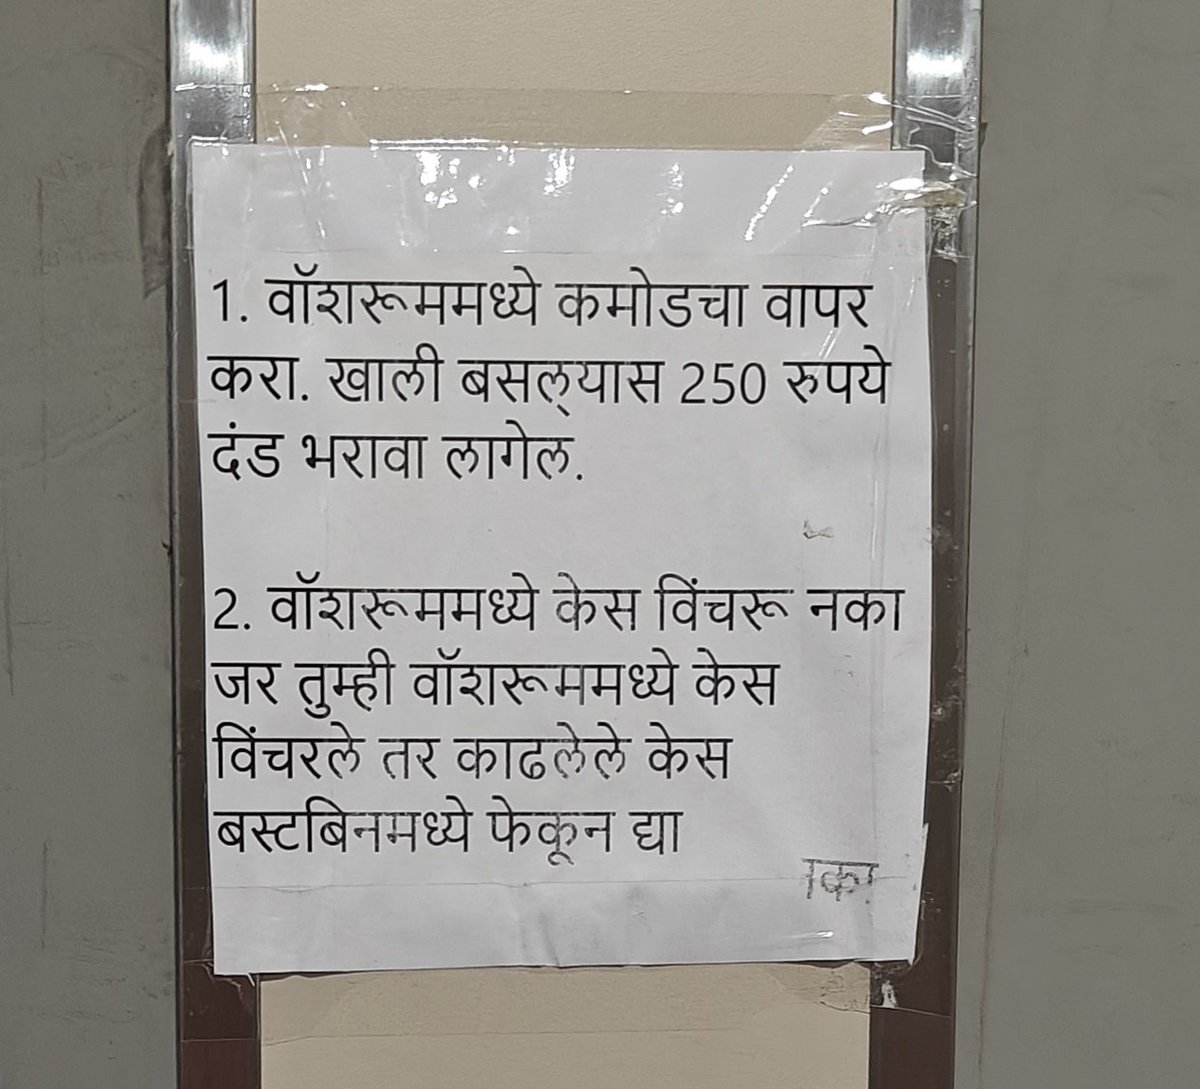 1. वॉशरूममध्ये कमोडचा वापर
करा. खाली बसल्‌यास 250 रुपये
दंड भरावा लागेल.
2. वॉशरूममध्ये केस विंचरू नका
जर तुम्ही वॉशरूममध्ये केस
विंचरले तर काढलेले केस
बस्टबिनमध्ये फेकून द्या